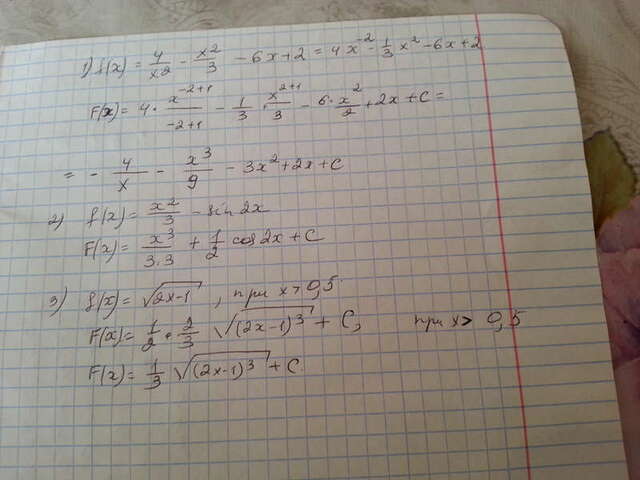 1) f(x) = 4/x² - x²/3 - 6x + 2 = 4x⁻² - 1/3 x² - 6x + 2
F(x) = 4 · x⁻²⁺¹/-2+1 - 1/3 · x²⁺¹/3 - 6 · x²/2 + 2x + C =
= - 4/x - x³/9 - 3x² + 2x + C
2) f(x) = x²/3 - sin 2x
F(x) = x³/3.3 + 1/2 cos 2x + C
3) f(x) = √(2x-1) , при x > 0,5
F(x) = 1/2 · 2/3 √(2x-1)³ + C, при x > 0,5
F(x) = 1/3 √(2x-1)³ + C.